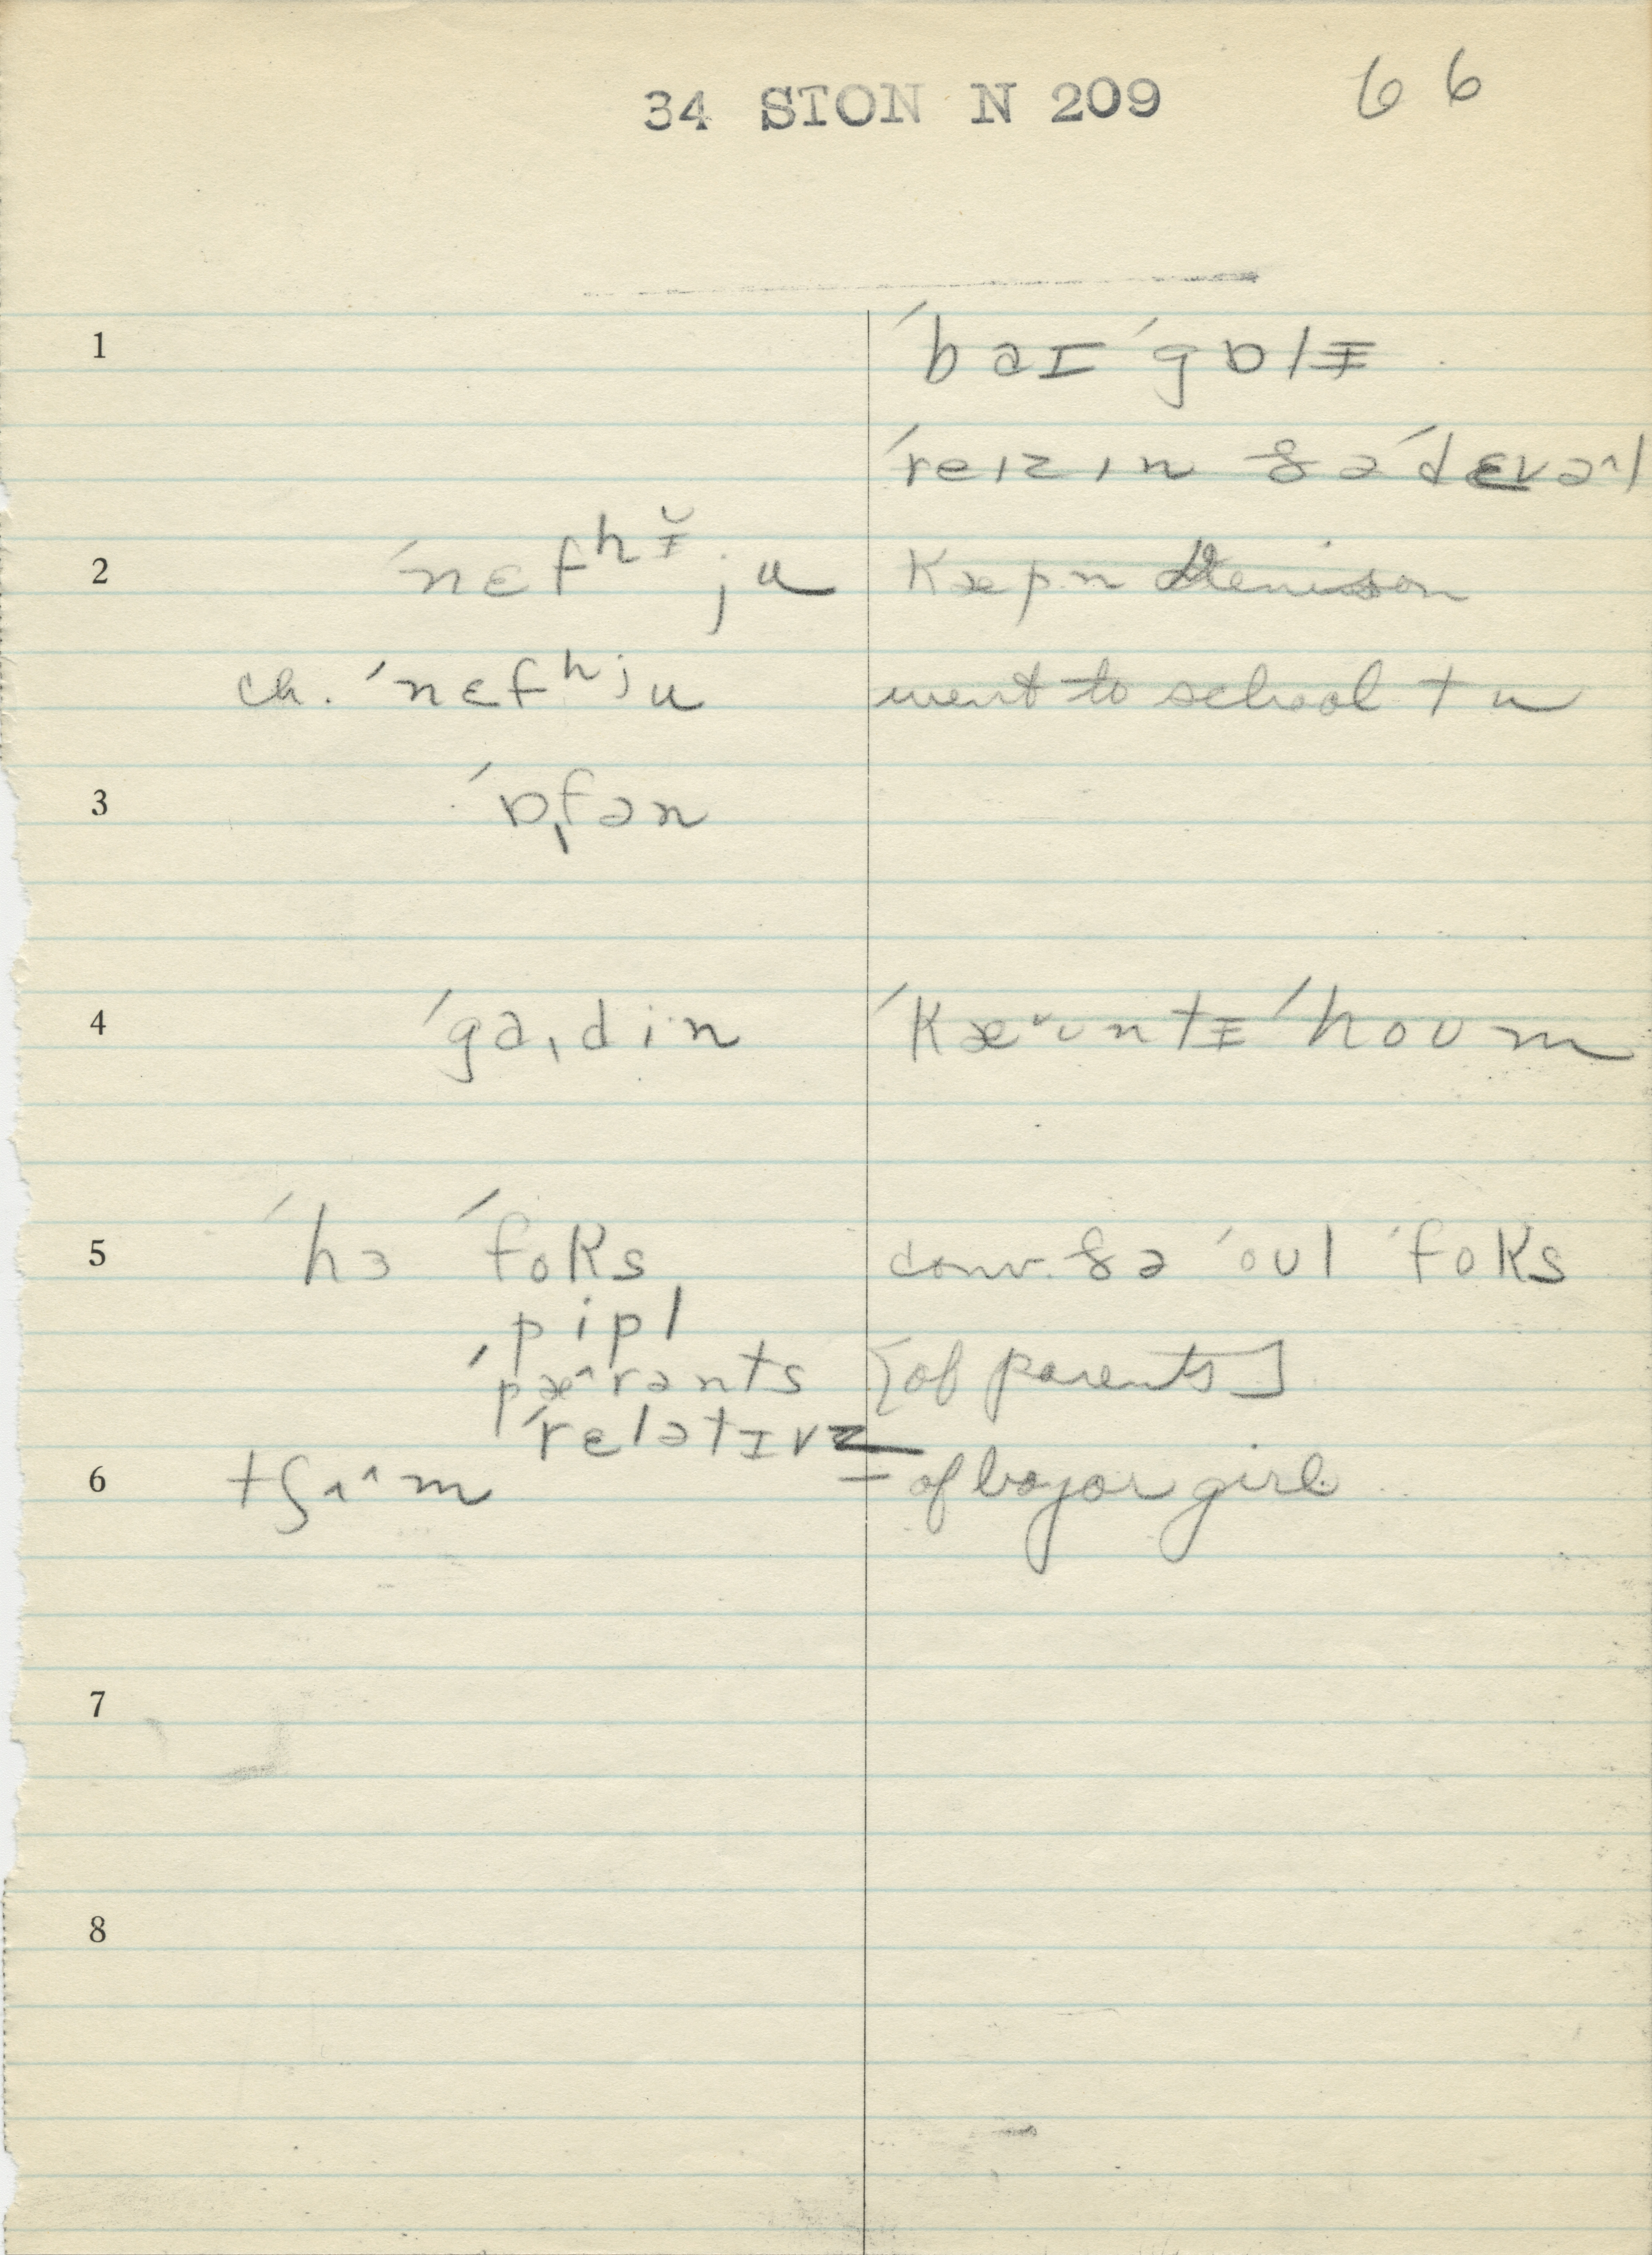 34 STON N 209 66
1 ˈbaɪ ˈgɒlɪ̵
ˈreɪzɪn ðə ˈdɛvə^l
2 ˈnɛfʰɪ̵̆ju Kæpn Denison
ch. ˈnɛfʰju went to school tu
3 ˈɒˌfən
4 ˈgaˌdin ˈKæ˅ʊntɪ̵ ˈhoʊm
5 ˈhɜ ˈfoKs conv. ðə ˈoʊl ˈfoKs
ˌpipl
ˈpæ^rənts [of parents]
ˈrɛlətɪvz
6 tʃʌ^m – of boy or girl
7
8